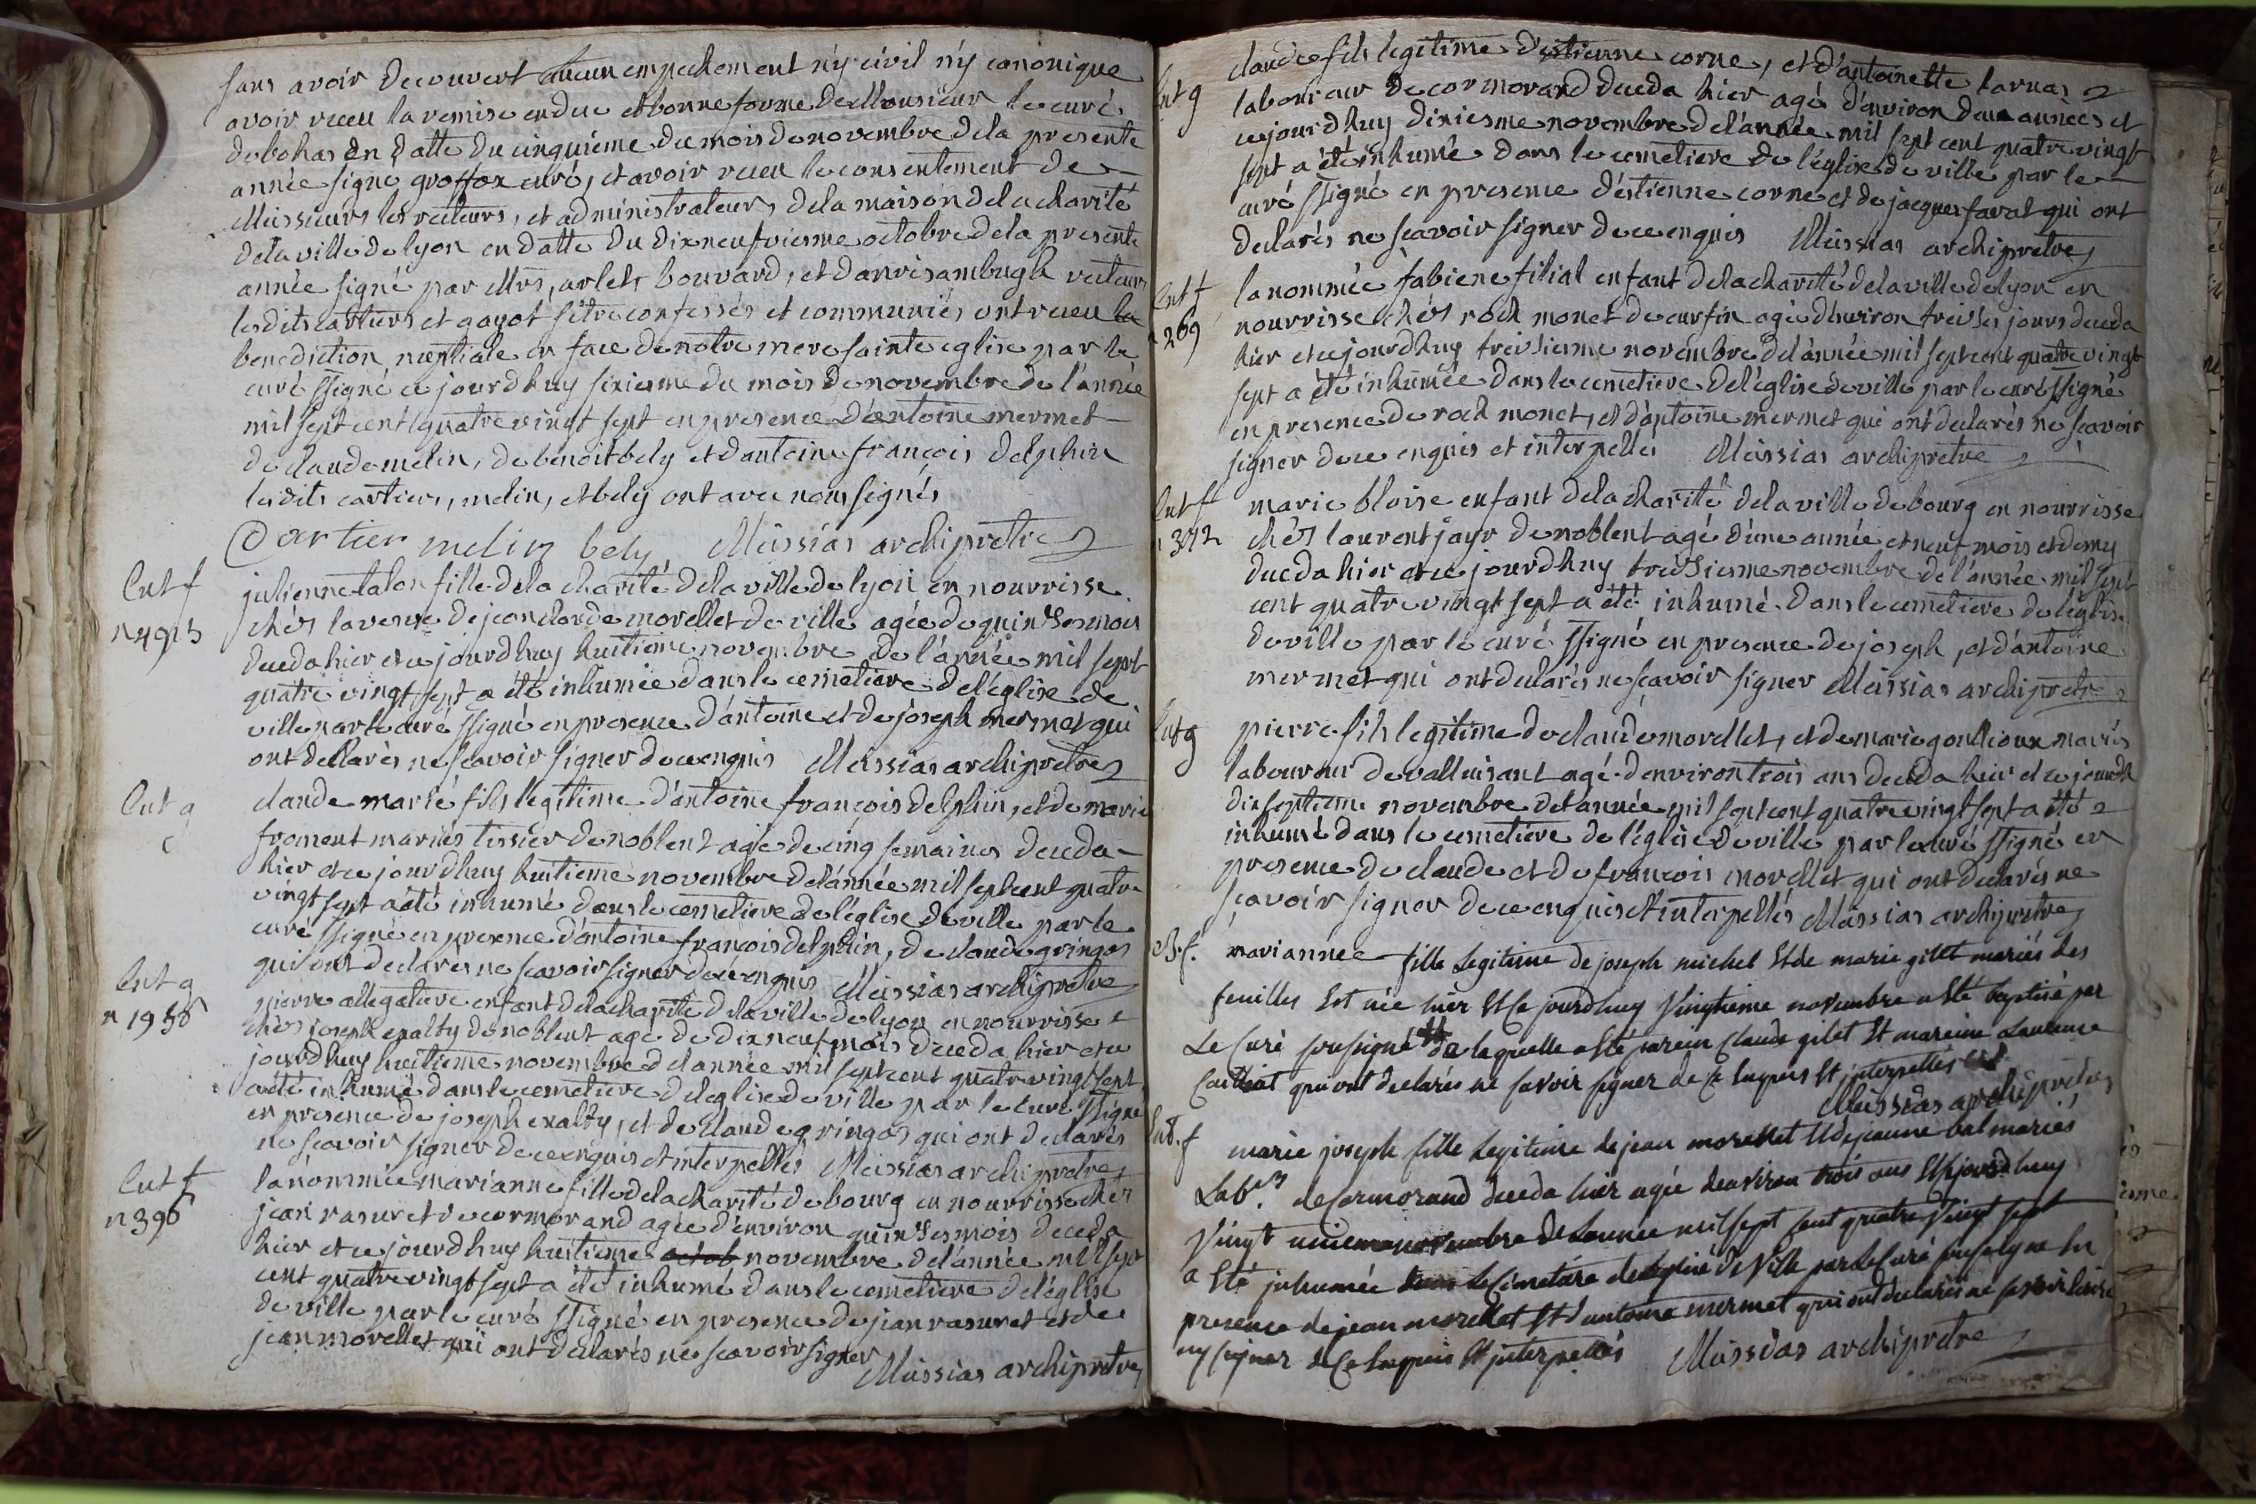 sans avoir decouvert aucun empechement n'y civil n'y canonique
avoir receu la remise en due et bonne forme de Monsieur le curé
de bohas en datte du cinquième du mois de novembre de la presente
année signé groffox curé, et avoir receu le consentement de
Messieurs les recteurs, et administrateurs de la maison de la charité
de la ville de lyon en datte du dix neufviesme octobre de la presente
année signé par Mrs, arlets bouvard, et danrisambugh recteurs
lesdits cartiers et gayot s'être confessés et communiés ont receu la
benediction nuptiale en face de notre mere sainte eglise par le
curé ssigné ce jourd'huy sixiesme du mois de novembre de l'année
mil sept cent quatre vingt sept en presence d'antoine mermet
de claude melin, de benoit bely et d'antoine françois delphin
lesdits cartiers, melin, et bely ont avec nous signés
Cartier melin bely Messias archiprêtre
Ent f
n 4913
julienne talon fille de la charité de la ville de lyon en nourrisse
chés la veuve de jean claude morellet de ville agée de quinses mois
deceda hier et ce jourd'huy huitieme novembre de l'année mil sept
quatre vingt sept a été inhumée dans le cemetiere de l'église de
ville par le curé ssigné en presence d'antoine et de joseph mermet qui
ont declarés ne scavoir signer de ce enquis Messias archiprêtre
Ent g
c
claude marié fils legitime d'antoine françois delphin, et de marie
froment mariés tissier de noblent agé de cinq semaines deceda
hier et ce jourd'huy huitieme novembre de l'année mil sept cent quatre
vingt sept a été inhumé dans le cemetiere de l'église de ville par le
curé ssigné en presence d'antoine françois delphin, de claude gringos
qui ont declarés ne scavoir signer de ce enquis Messias archiprêtre
Ent g
n 1958
pierre allegatiere enfant de la charité de la ville de lyon en nourrisse
chés joseph exalty de noblent agé de dix neuf mois deceda hier et ce
jourd'huy huitieme novembre de l'année mil sept cent quatre vingt sept
a été inhumé dans le cemetiere de l'église de ville par le curé ssigné
en presence de joseph exalty, et de claude gringos qui ont declarés
ne scavoir signer de ce enquis et interpellés Messias archiprêtre
Ent f
n 396
la nommée marianne fille de la charité de bourg en nourrisse chés
jean rasuret de cormorand agée d'environ quinses mois deceda
hier et ce jourd'huy huitieme octob novembre de l'année mil sept
cent quatre vingt sept a été inhumé dans le cemetiere de l'église
de ville par le curé ssigné en presence de jean rasuret et de
jean morellet qui ont declarés ne scavoir signer
Messias archiprêtre
Ent g
claude fils legitime d'estienne corne, et d'antoinette larnas
laboureur de cormorand deceda hier agé d'environ deux années et
ce jourd'huy dixiesme novembre de l'année mil sept cent quatre vingt
sept a été inhumé dans le cemetiere de l'église de ville par le
curé ssigné en presence d'estienne corne et de jacques faval qui ont
declarés ne scavoir signer de ce enquis Messias archiprêtre
Ent f
n 269
la nommée fabiene filial enfant de la charité de la ville de lyon en
nourrisse chés roch monet de curfin agée d'environ treises jours deceda
hier et ce jourd'huy treisiesme novembre de l'année mil sept cent quatre vingt
sept a été inhumée dans le cemetiere de l'église de ville par le curé ssigné
en presence de roch monet, et d'antoine mermet qui ont declarés ne scavoir
signer de ce enquis et interpellés Messias archiprêtre
Ent f
n 372
marie bloise enfant de la charité de la ville de bourg en nourrisse
chés laurent jayr de noblent agé d'une année et neuf mois et demy
deceda hier et ce jourd'huy treisiesme novembre de l'année mil sept
cent quatre vingt sept a été inhumé dans le cemetiere de l'église
de ville par le curé ssigné en presence de joseph, et d'antoine
mermet qui ont declarés ne scavoir signer Messias archiprêtre
Ent g
pierre fils legitime de claude morellet, et de marie gonthioux mariés
laboureur de valluisant agé d'environ trois ans deceda hier et ce jourdh
dix septieme novembre de l'année mil sept cent quatre vingt sept a été
inhumé dans le cemetiere de l'église de ville par le curé ssigné en
presence de claude et de francois morellet qui ont declarés ne
scavoir signer de ce enquis et interpellés Messias archiprêtre
B. f.
mariannee fille legitime de joseph michel Et de marie gilet mariés des
feuilles Est née hier Et ce jourdhuy Vingtieme novembre a Eté baptisé par
Le Curé sousigné de laquelle a Eté parein Claude gilet Et mareine Laurence
Cailliat qui ont declarés ne savoir signer de ce Enquis Et interpelles
Messias archiprêtre
Ent. f
marie joseph fille Legitime de jean morellet Et de jeanne bal mariés
Labrs. de Cormorand deceda hier agée denviron trois ans Et cejourdhuy
Vingt uniéme novembre de Lannée mil sept Cent quatre Vingt sept
a Eté inhumée dans Le Cimetiere de leglise de Ville par Le Curé sousigné En
presence de jean morellet Et d'antoine mermet qui ont declarés ne savoir
ny signer de ce Enquis Et interpellés Messias archiprêtre